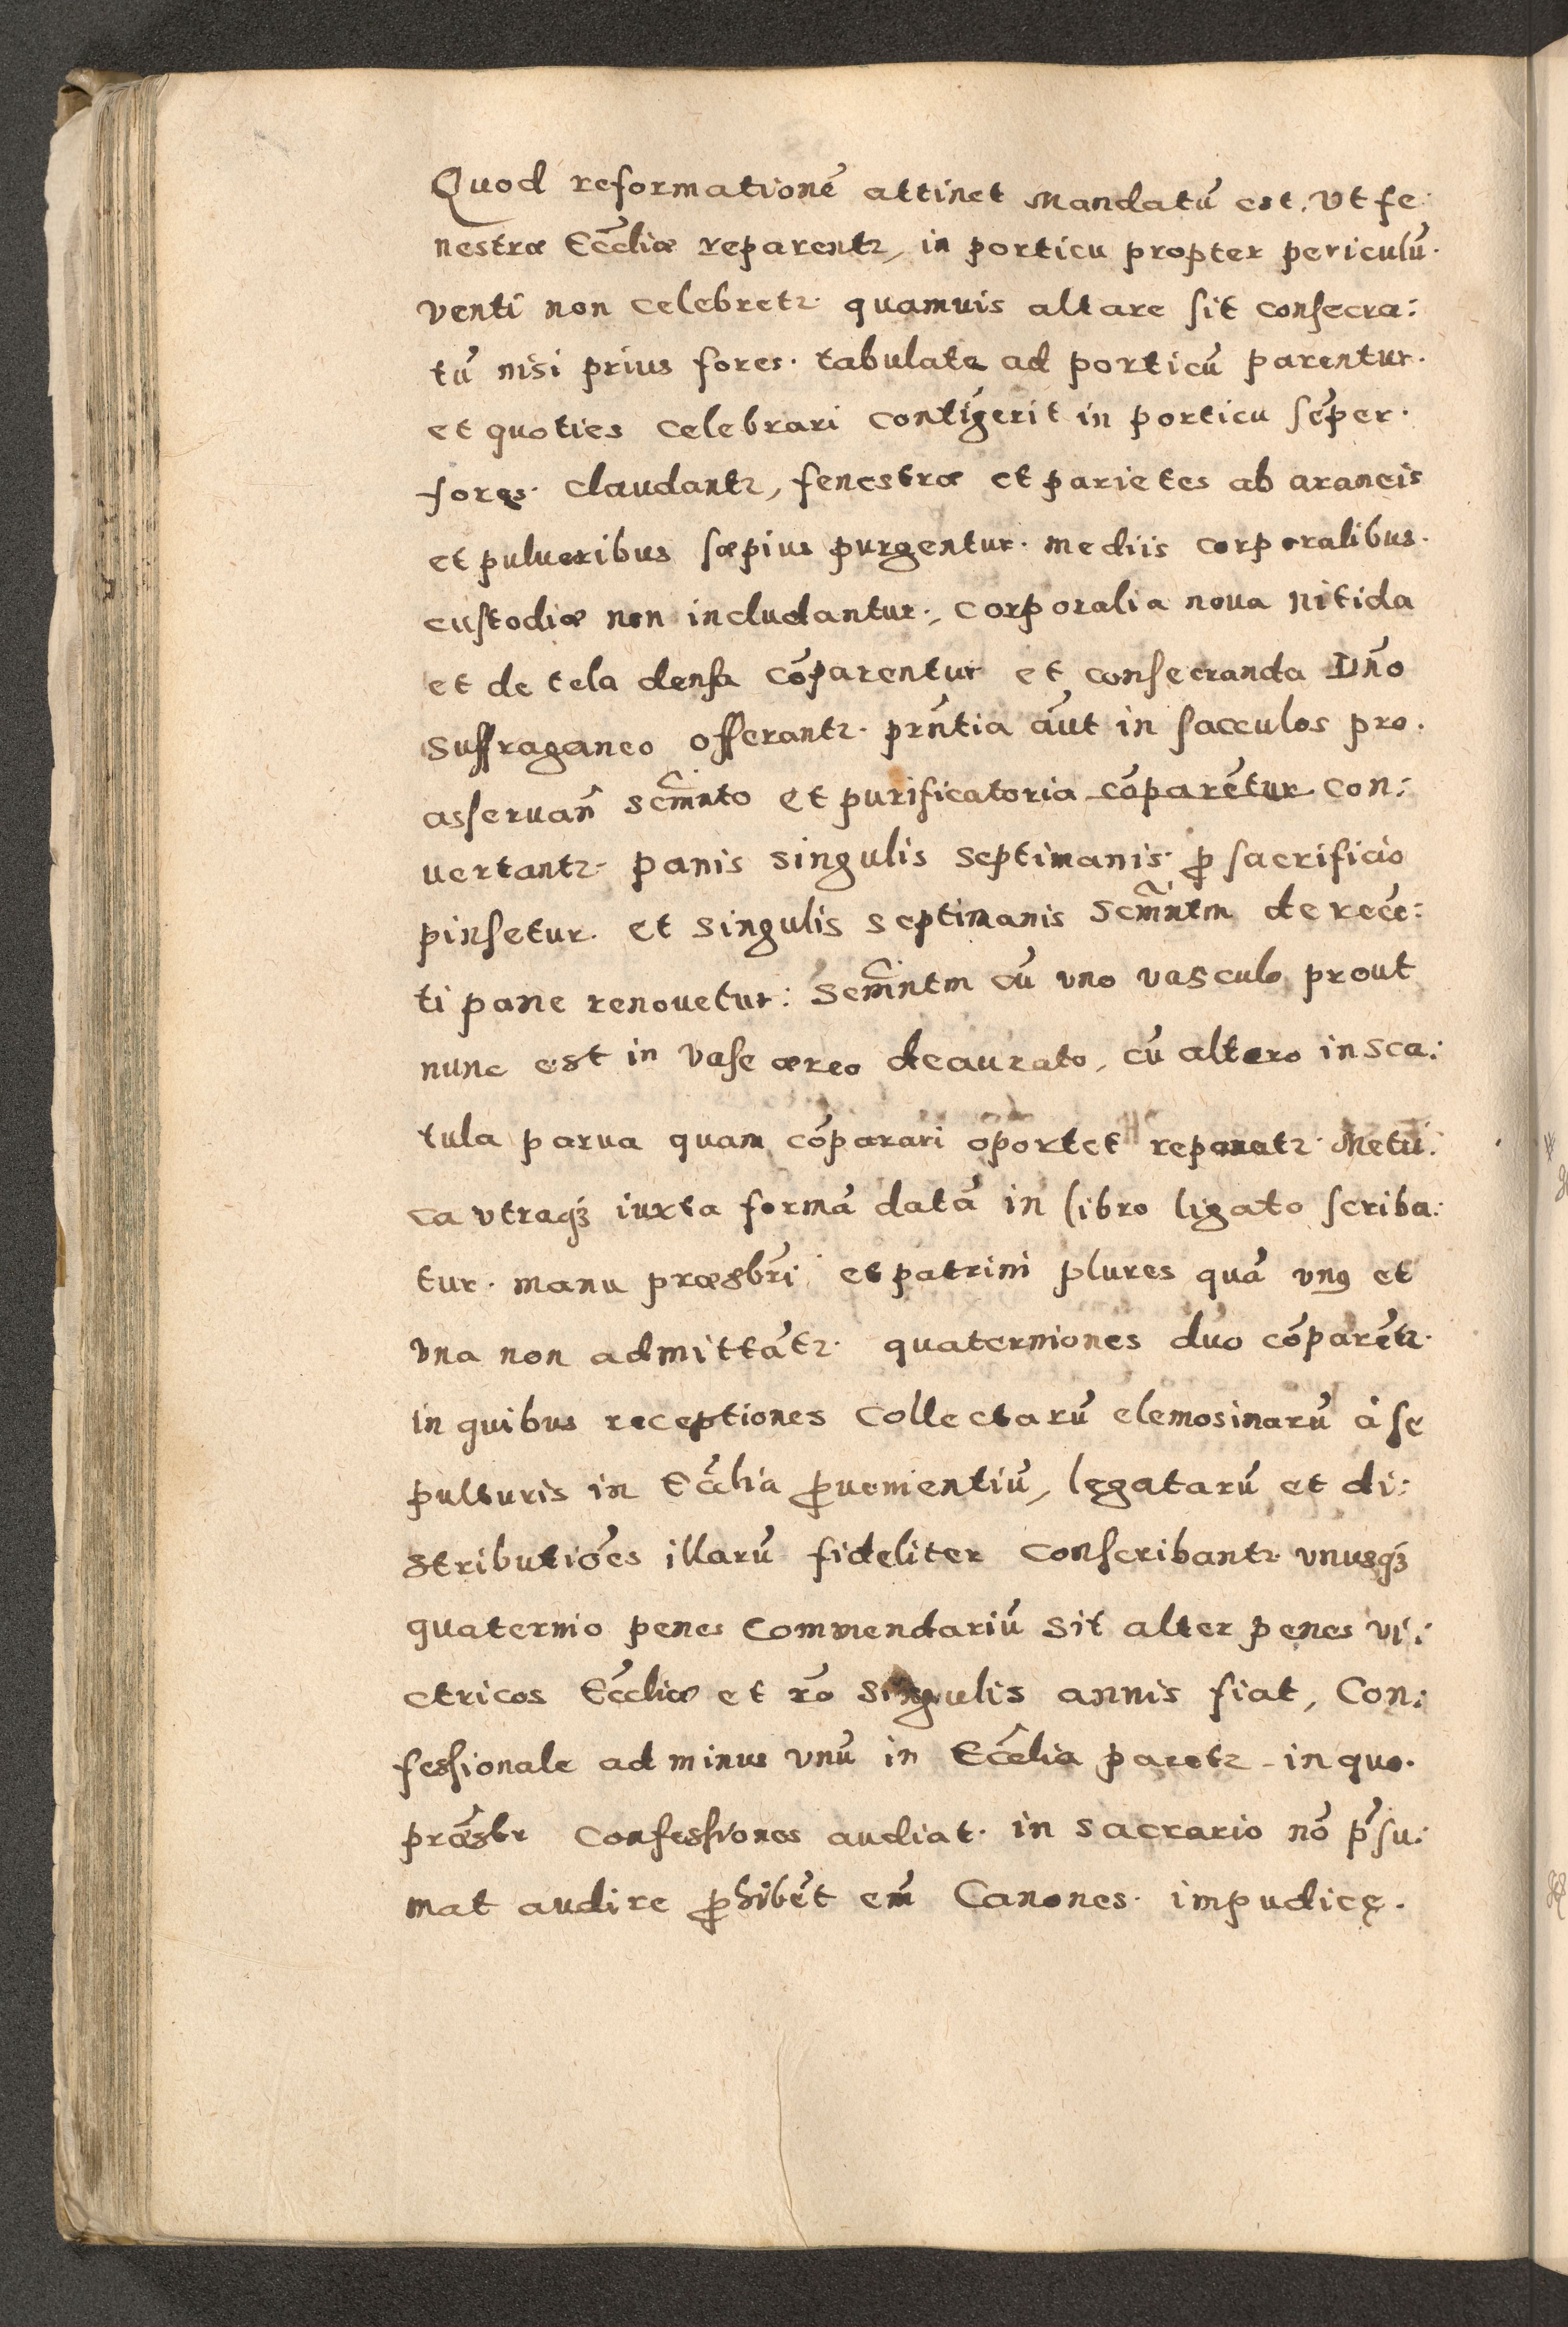 Quod reformationē attinet mandatū est. Vt fe:
nestræ Eccłiæ reparentr, in porticu propter periculū.
venti non celebretr. quamuis altare sit consecra:
tū nisi prius fores. tabulatæ ad porticū parentur.
et quoties celebrari contigerit in porticu sēper.
fores. claudantr, fenestræ et parietes ab araneis
et pulueribus sæpius purgentur. mediis corporalibus.
custodiæ non includantur., corporalia noua nitida
et de tela densa cōparentur et consecranda Dño
Suffraganeo offerantr. prñtia aūt in sacculos pro.
asseruañ Scm̄nto et purificatoria cōparētur con:
uertantr. panis singulis septimanis. ꝓ sacrificio
pinsetur. et singulis septimanis Scm̄ntm de recē:
ti pane renouetur: Scm̄ntm cū vno vasculo prout
nunc est in vase æreo deaurato, cū altero in sca:
tula parua quam cōparari oportet reponatr. Metri:
ca vtraqȝ iuxta formā datā in libro ligato scriba:
tur. manu præsbr̄i et patrini plures quā vnꝰ et
vna non admittātr. quaterniones duo cōparētr.
in quibus receptiones collectarū elemosinarū à se
pulturis in Eccłia ꝓuenientiū, legatarū et di:
stributiōes illarū fideliter conscribantr vnusqȝ
quaternio penes commendariū sit alter penes vi:
ctricos Eccłiæ et rō singulis annis fiat, Con:
fessionale ad minus vnū in Eccłia paretr - in quo.
præsbr confessiones audiat. in sacrario nō p̄su:
mat audire ꝓhibēt em̄ Canones. impudicę.